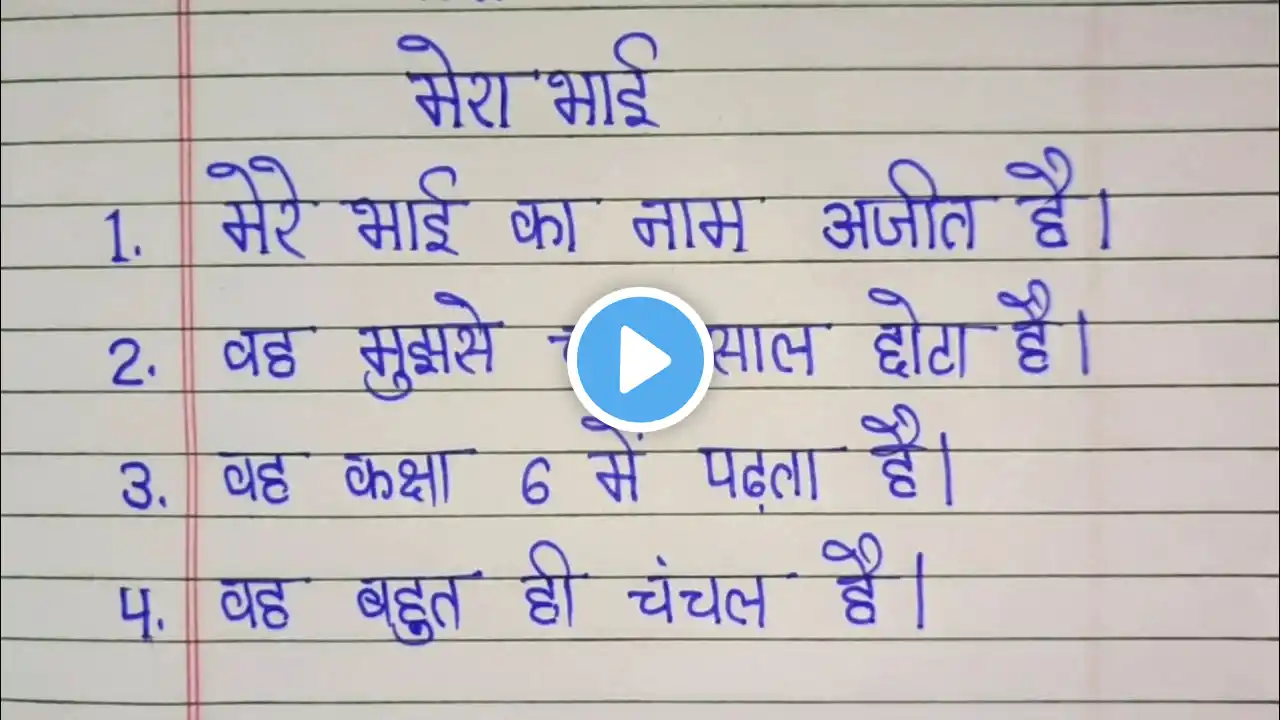 मेरा भाई
1. मेरे भाई का नाम अजीत है।
2. वह मुझसे साल छोटा है।
3. वह कक्षा 6 में पढ़ता है।
4. वह बहुत ही चंचल है।